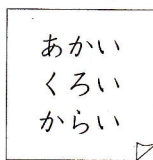 あかい
くろい
からい